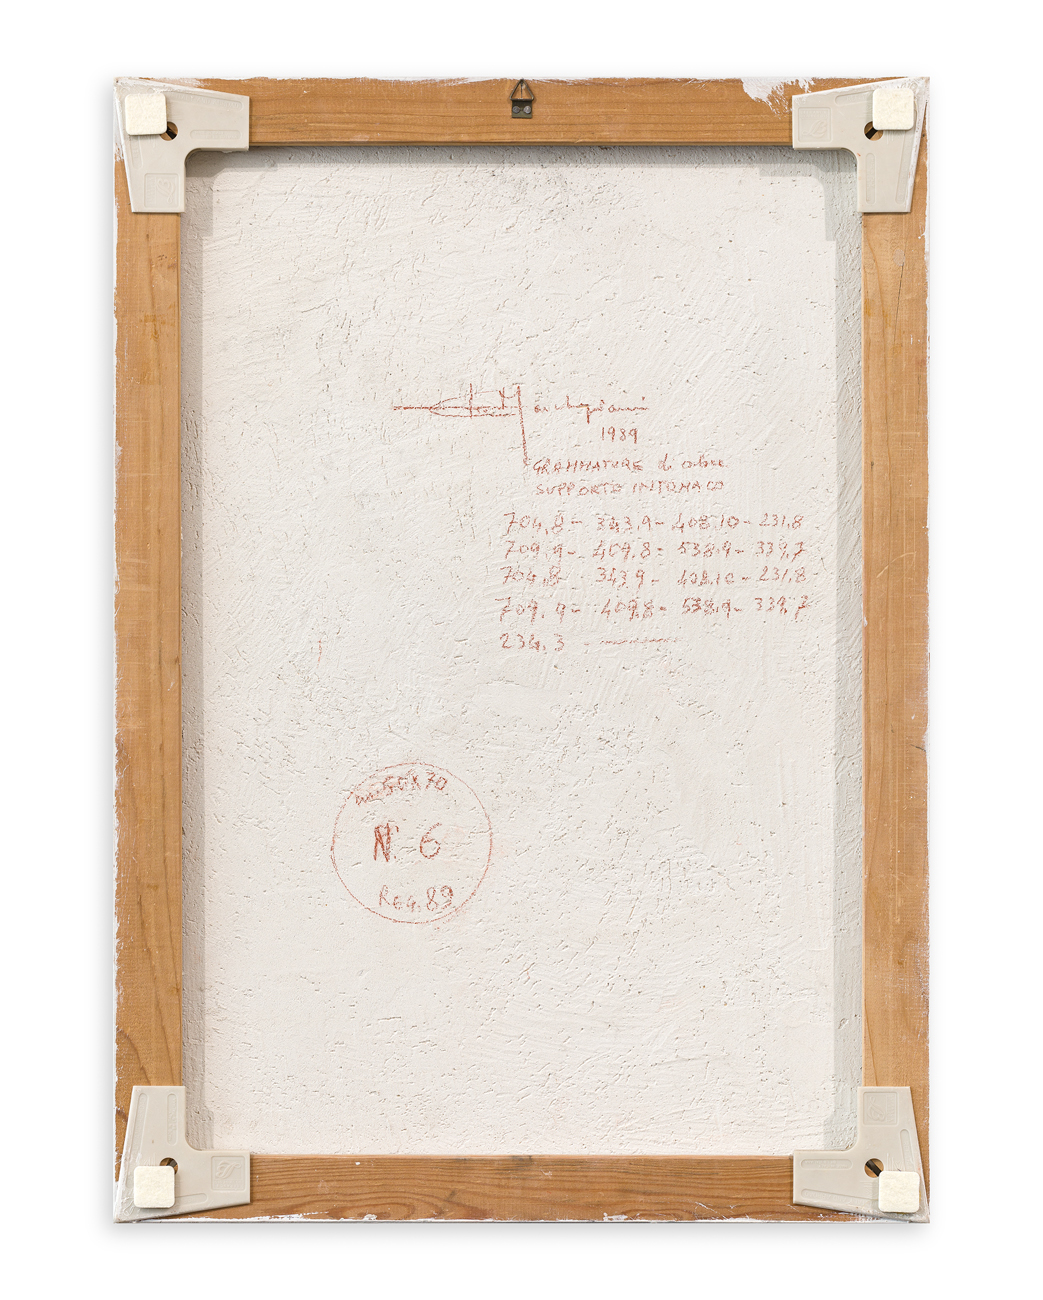 Marchegiani
1989
GRAMMATURE di colore
SUPPORTO INTONACO
704,8 - 343,9 - 408,10 - 231,8
709,9 - 409,8 - 538,9 - 339,7
704,8 - 343,9 - 408,10 - 231,8 -
709,9 - 409,8 - 538,9 - 339,7
234,3
mis 50X70
N° 6
Reg. 89